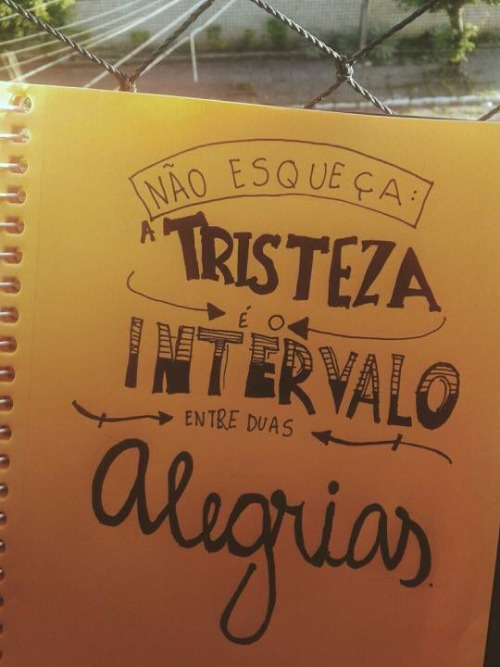 NÃO ESQUEÇA:
A TRISTEZA
É O
INTERVALO
ENTRE DUAS
Alegrias.